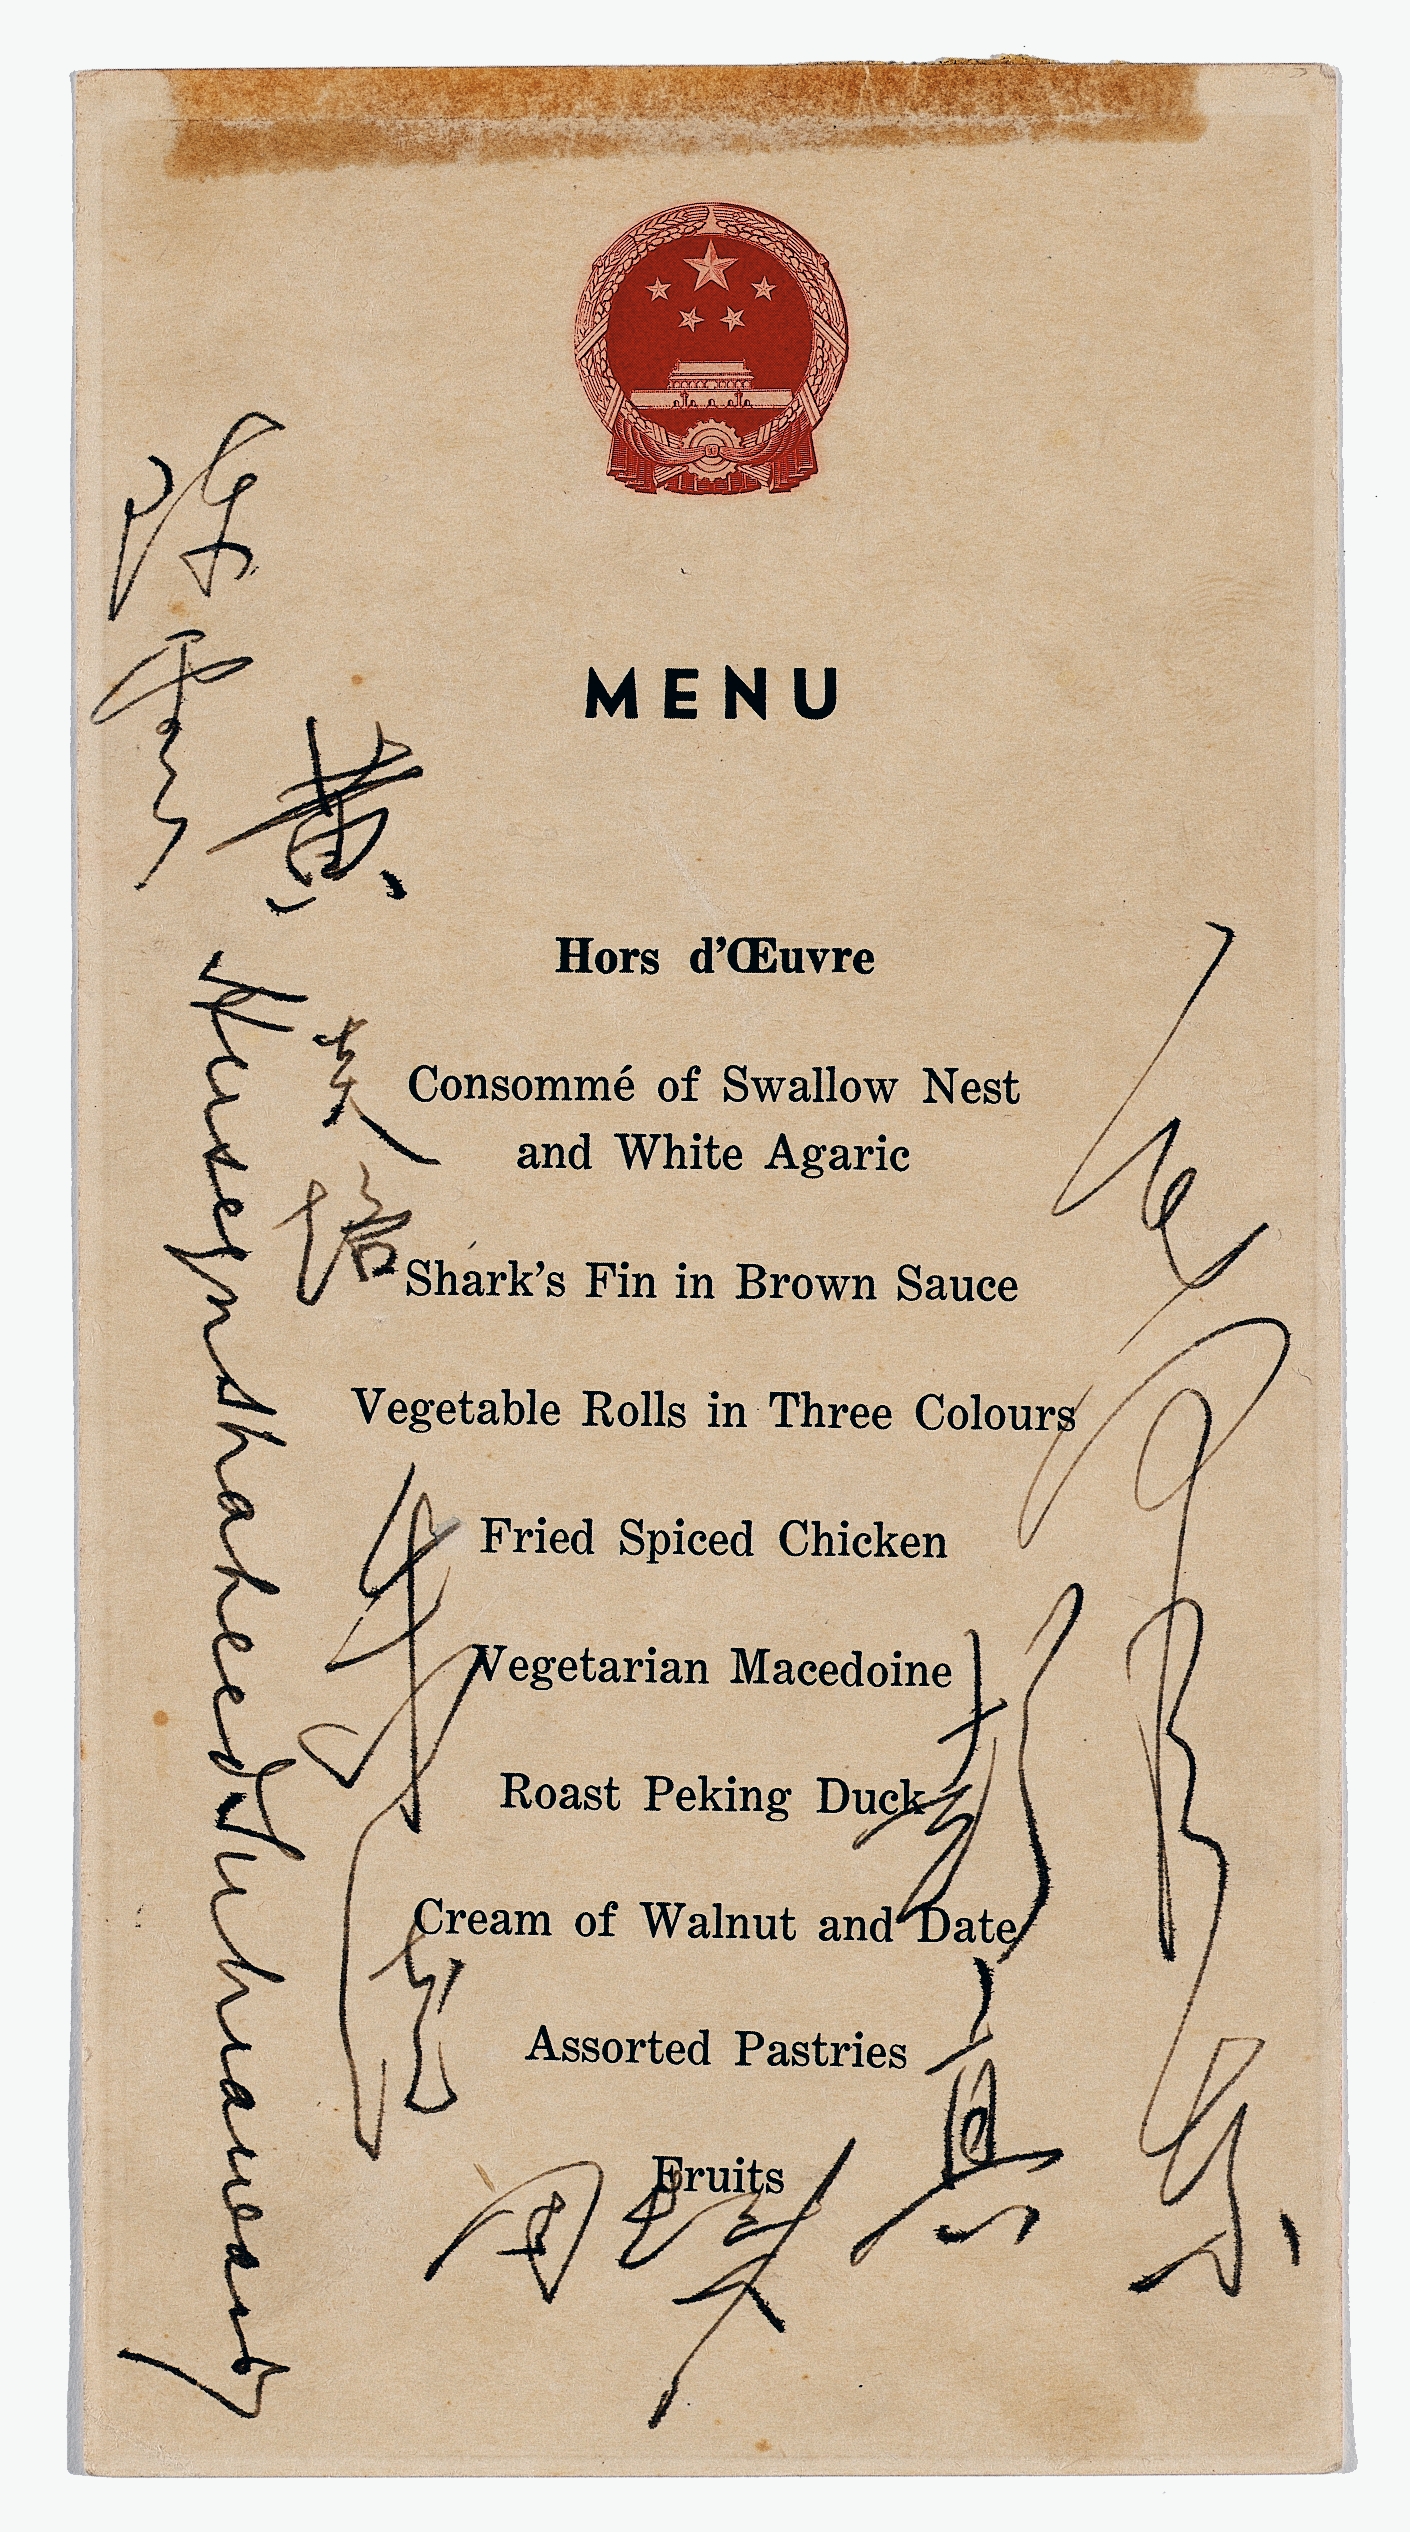 MENU
Hors d'Œuvre
Consommé of Swallow Nest
and White Agaric
Shark's Fin in Brown Sauce
Vegetable Rolls in Three Colours
Fried Spiced Chicken
Vegetarian Macedoine
Roast Peking Duck
Cream of Walnut and Date
Assorted Pastries
Fruits
陈雲
黄炎培
Huseyn Shaheed Suhrawardy
朱德
周恩来
彭真